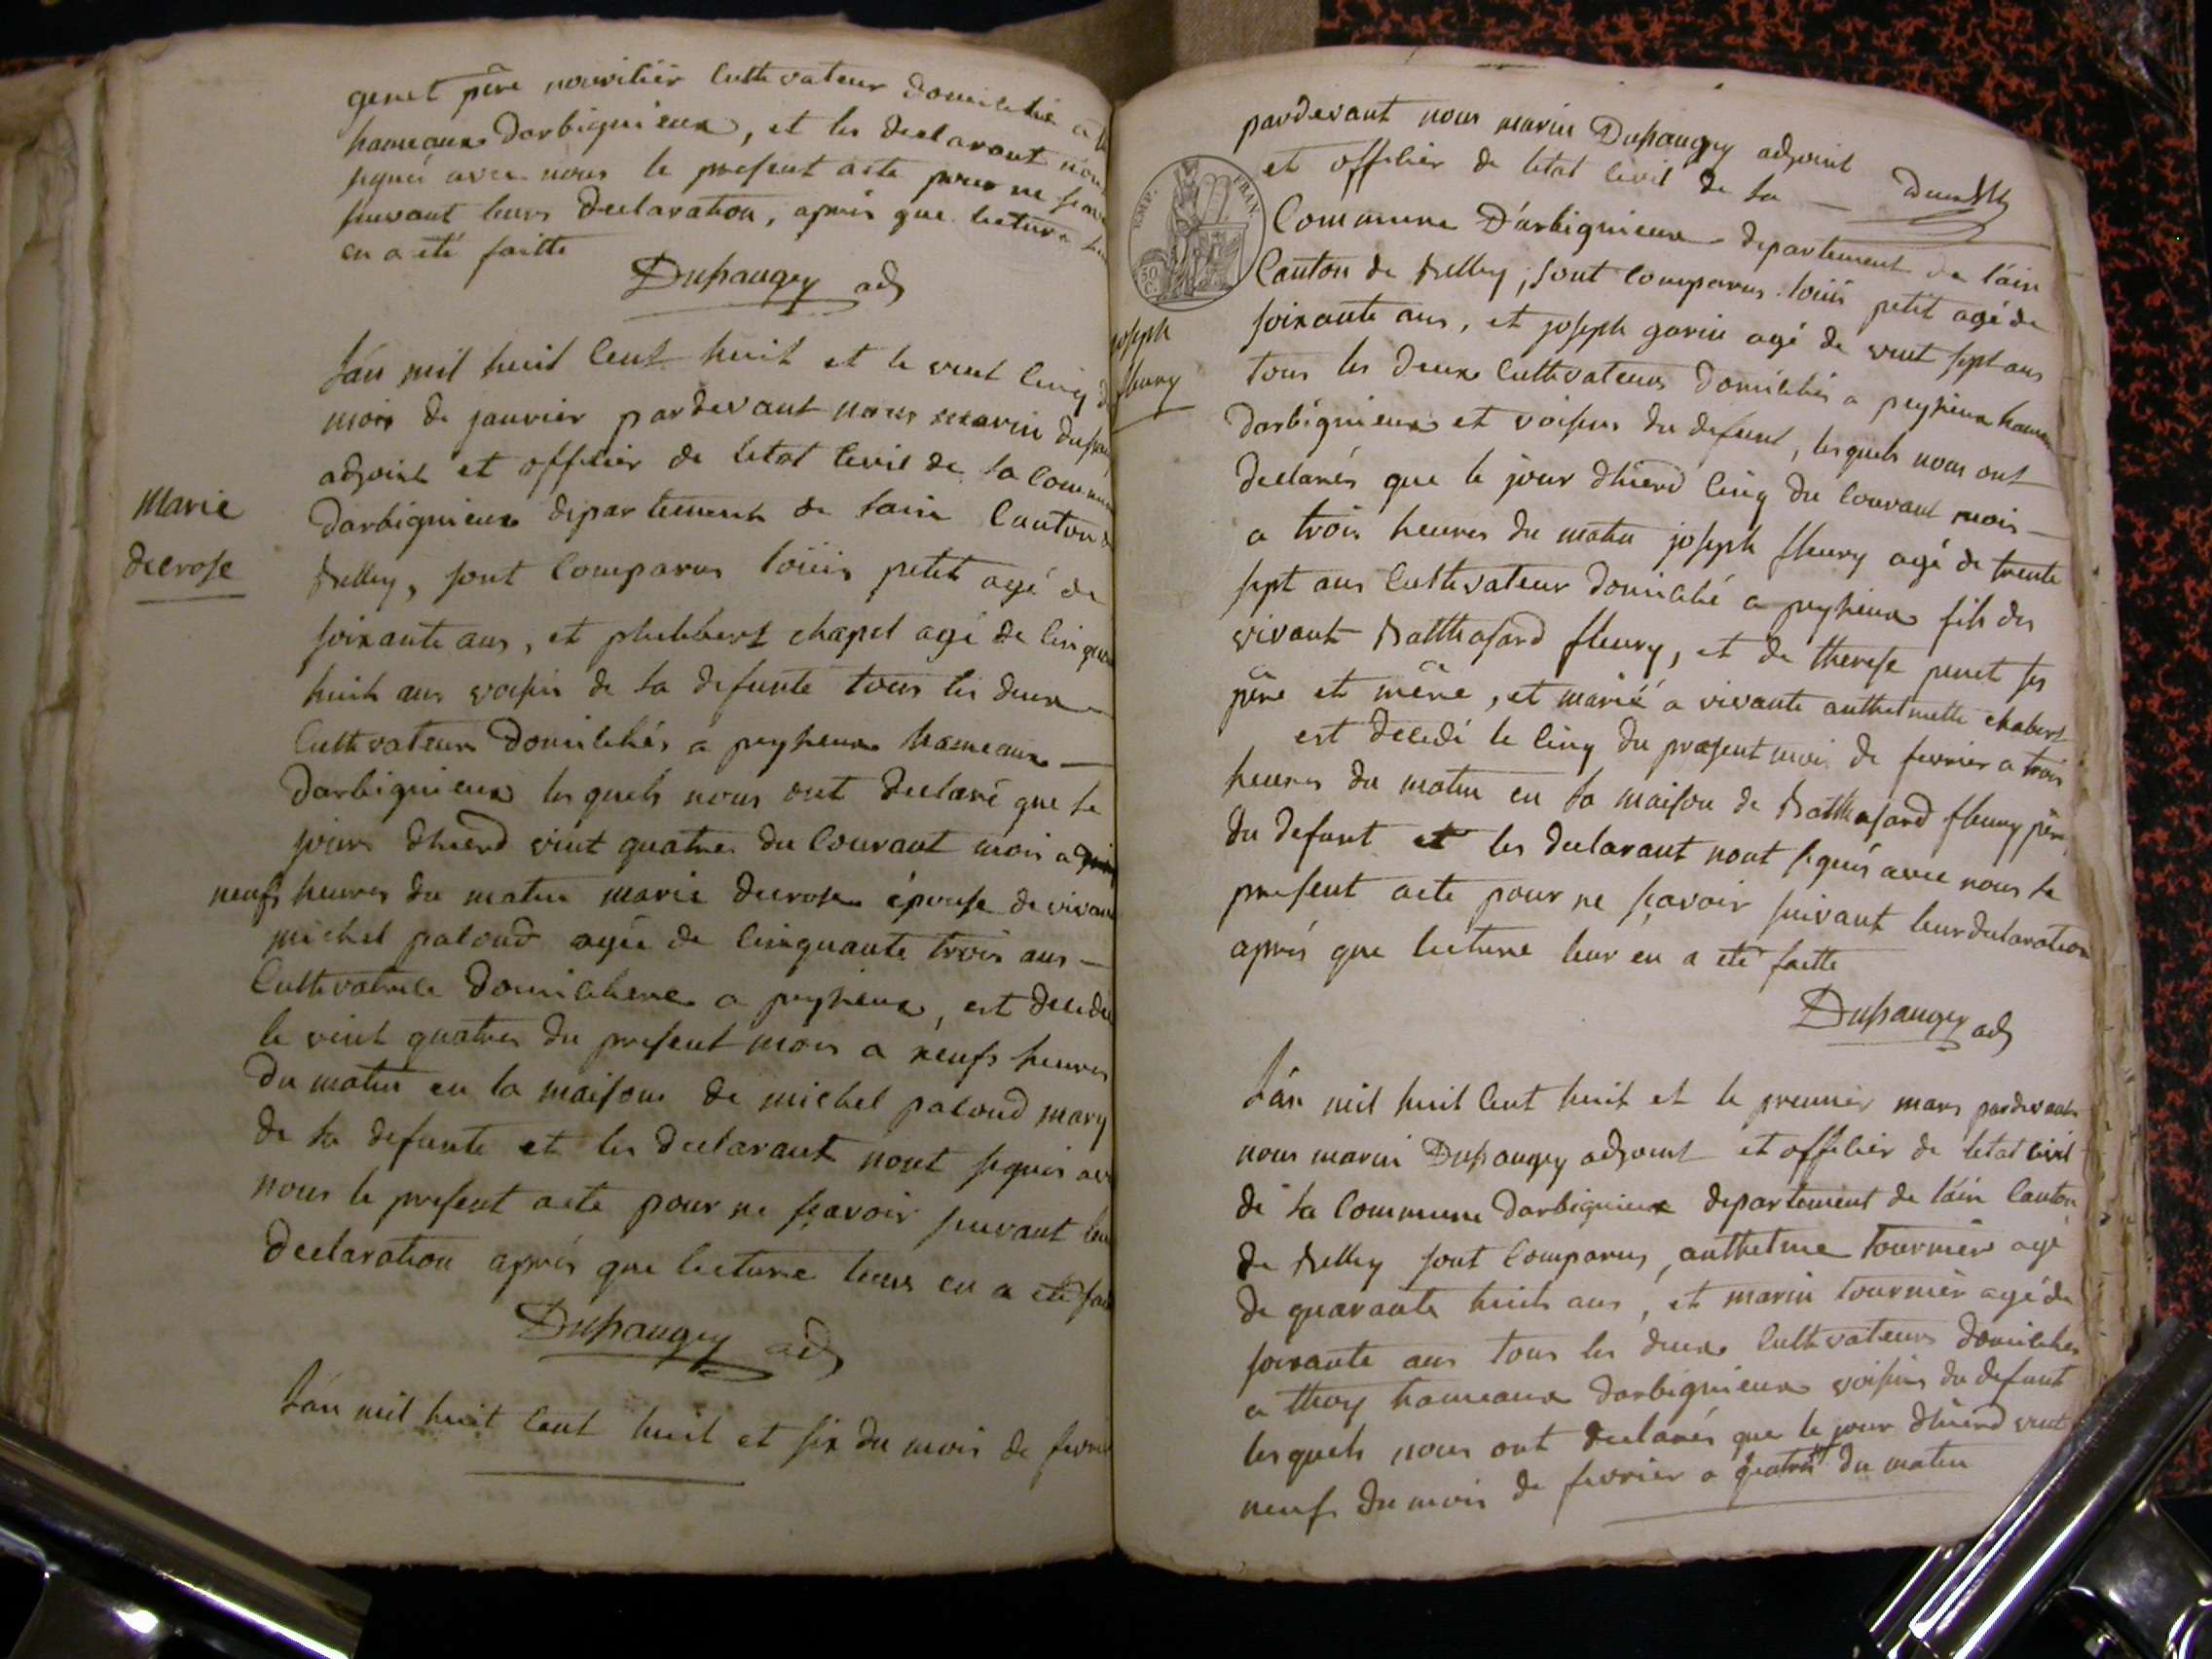 genet père nouritier Cultivateur domicilié a
hameaux darbignieux, et les declarant nont
signés avec nous le present acte pour ne scavoir
suivant leurs declaration, après que lecture
en a été faitte
Dupaugey adj
Lán mil huit Cent huit et le vint Cinq
mois de janvier pardevant nous marin
adjoint et offilier de letat Civil de la Commune
Marie
decrose
darbignieux departement de lain Canton
Belley, sont Comparus loüis petit agé de
soixante ans, et philibert chapel agé de Cinquante
huit ans voisin de la defunte tous les deux
Cultivateurs domiciliés a peyzieux hameaux
darbignieux lesquels nous ont declaré que le
jours dhierd vint quatres du Courant mois a
neufs heures du matin marie decrose épouse de vivant
michel paloud agée de Cinquante trois ans
Cultivatrice domiciliere a peyzieux, est decedée
le vint quatres du present mois a neufs heures
du matin en la maisons de michel paloud mary
de la defunte et les declarant nont signés avec
nous le present acte pour ne sçavoir suivant leur
declaration après que lecture leurs en a été
Dupaugey adj
Lán mil huit Cent huit et six du mois de fevrier
pardevant nous marin Dupaugey adjoint
et offilier de létat Civil de la
EMP. FRAN.
50 C.
Commune Dárbignieux departement de láin
Canton de Belley, sont Comparus loüis petit agé de
joseph
fleury
soixante ans, et joseph garin agé de vint sept ans
tous les deux Cultivateurs domiciliés a peyzieux hameaux
darbignieux et voisins du defunt, lesquels nous ont
declarés que le jour dhierd Cinq du Courant mois
a trois heures du matin joseph fleury agé de trente
sept ans Cultivateur domicilié a peyzieux fils des
vivant Balthasard fleury, et de therese penet ses
père et mère, et marié a vivante anthelmette chabert
est decedé le Cinq du present mois de fevrier a trois
heures du matin en la maison de Balthasard fleury père
du defunt et les declarant nont signés avec nous le
present acte pour ne sçavoir suivant leur declaration
après que lecture leur en a été faitte
Dupaugey adj
Lán mil huit Cent huit et le premier mars pardevant
nous marin Dupaugey adjoint et offilier de letat Civil
de la Commune darbignieux departement de láin Canton
de Belley sont Comparus, anthelme tournier agé
de quarante huit ans, et marin tournier agé de
soixante ans tous les deux Cultivateurs domiciliés
a thoy hameaux darbignieux voisins du defunt
lesquels nous ont declarés que le jour dhierd vint
neufs du mois de fevrier a quatres du matin